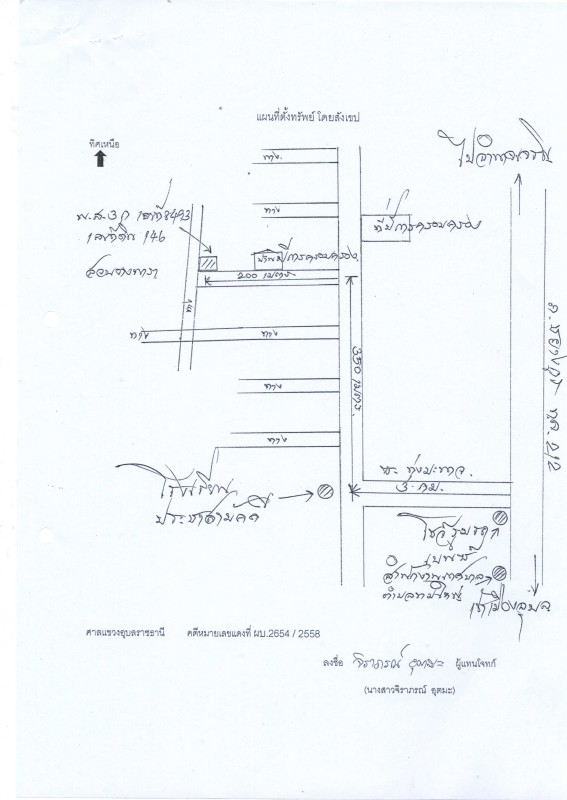 แผนที่ตั้งทรัพย์ โดยสังเขป
ทิศเหนือ
ทาง
ทาง
น.ส.3 ก เลขที่ 8493
เลขที่ดิน 146
สวนยางพารา
ที่มีการครอบครอง
ที่มีการครอบครอง
200 เมตร
350 เมตร
ทาง
ทาง
ทาง
ทาง
ทาง
ถ. ชยางกูร ทล. 212
3 กม.
โรงเรียน
ประชาสามัคคี
โชว์รูมรถ
สำนักงานเทศบาล
เข้าเมืองอุบล
ศาลแขวงอุบลราชธานี คดีหมายเลขแดงที่ ผบ.2654 / 2558
ลงชื่อ จิราภรณ์ อุตมะ ผู้แทนโจทก์
(นางสาวจิราภรณ์ อุตมะ)